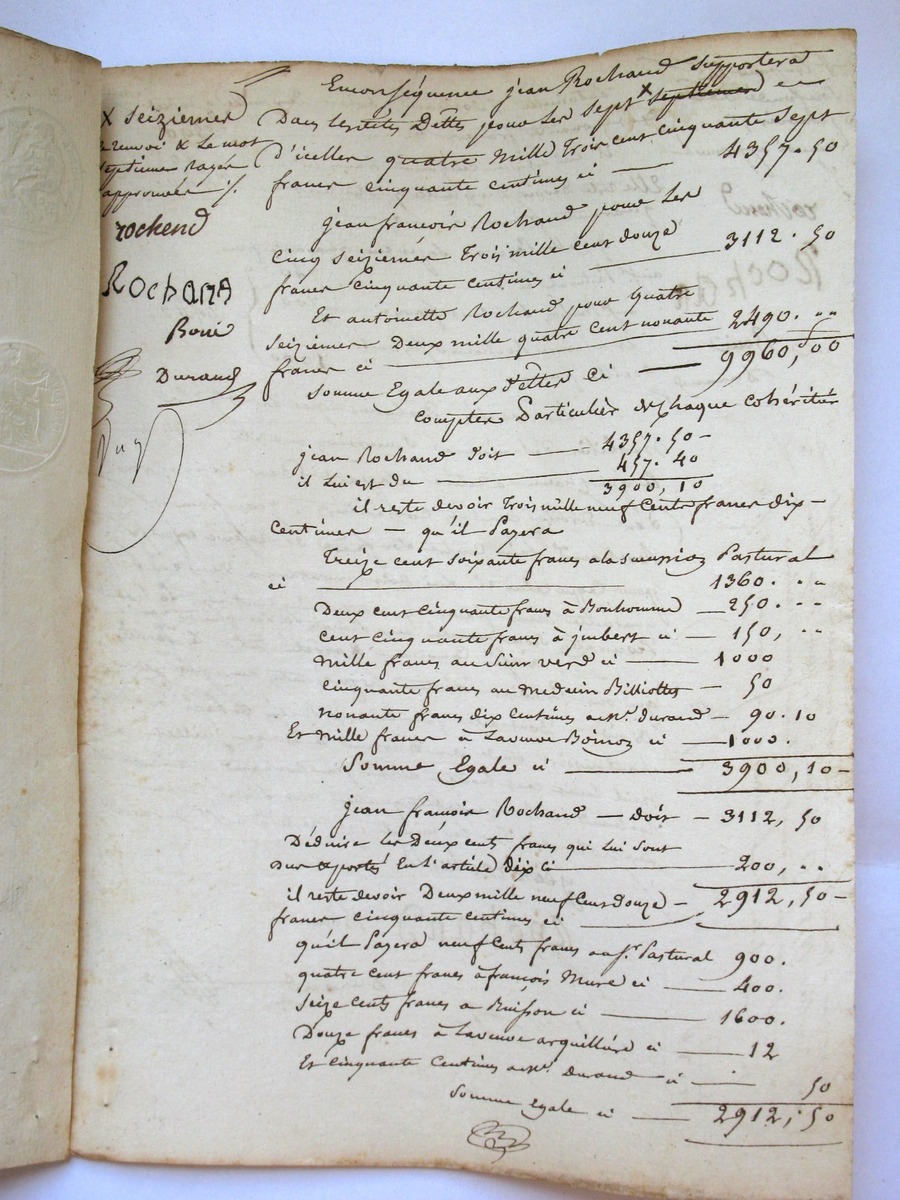 X seiziemes
renvoi X Le mot
septieme rayés
approuvés /.
rochend
ROchand
Boni
Durand
En conséquence jean Rochand supportera
Dans lesdites Dettes pour les sept X septiemes
D'icelles quatre mille Trois cent cinquante Sept
francs cinquante centimes ci 4357. 50
jean françois Rochand pour Les
cinq seiziemes Trois mille cent douze
francs cinquante centimes ci 3112. 50
Et antoinette Rochand pour quatre
seiziemes Deux mille quatre cent nonante
francs ci 2490. "
somme Egale aux Dettes Ci 9960,00
comptes Particulier de Chaque cohéritier
jean Rochand Doit 4357. 50 -
il Lui est du 457. 40
3900, 10
il reste devoir Trois mille neuf Cents francs dix
Centimes - qu'il Payera
Treize cent soixante francs a la succession Pastural
ci 1360. "
Deux cent Cinquante francs à Bonhomme 250. "
cent Cinquante francs à jmbert ci 150, "
mille francs au Sieur verd ci 1000
cinquante francs au medecin Billiottet 50
nonante francs dix Centimes a Mr. durand 90. 10
Et mille francs a La veuve ci 1000.
Somme Egale ci 3900, 10 -
jean francois Rochand - doit - 3112, 50
Déduire les Deux cents francs qui lui sont
En l'article dix ci 200, "
il reste devoir Deux mille neuf Cens douze - 2912, 50 -
francs cinquante centimes ci
qu'il Payera neuf Cents francs a Pastural 900.
quatre cent francs à françois Mure ci 400.
Seize cents francs a Buisson ci 1600.
Douze francs à La veuve arquilliére ci 12
Et cinquante Centimes a Mr. Durand ci 50
Somme egale ci 2912, 50